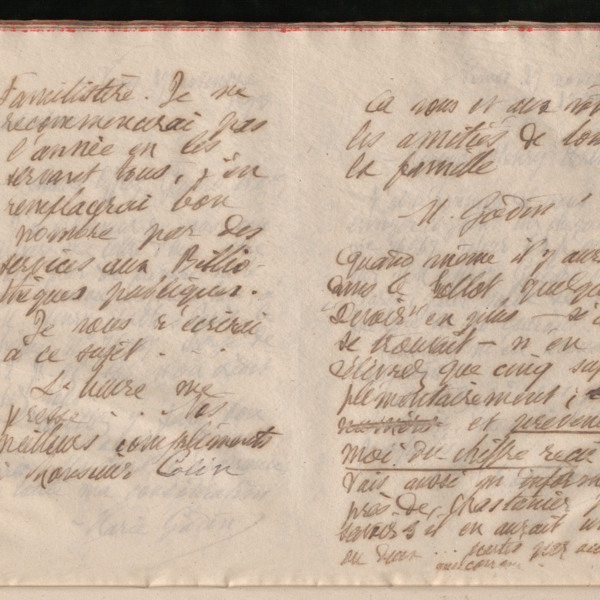 Familistère. Je ne
recommencerai pas
l'année en les
servant tous, j'en
remplacerai bon
nombre par des
services aux Biblio-
thèques publiques.
Je vous écrirai
à ce sujet.
L'heure me
presse... Nos
meilleurs compliments
à monsieur Colin
à vous et aux vôt
les amitiés de tou
la famille
M. Godin
Quand même il y aur
dans le ballot quelqu
"Devoir" en plus — s'
se trouvait — n'en
que cinq sup
plémentairement;
et préven
moi du chiffre
Vais aussi m'inform
près de Chastanier
s'il en aurait un
ou deux